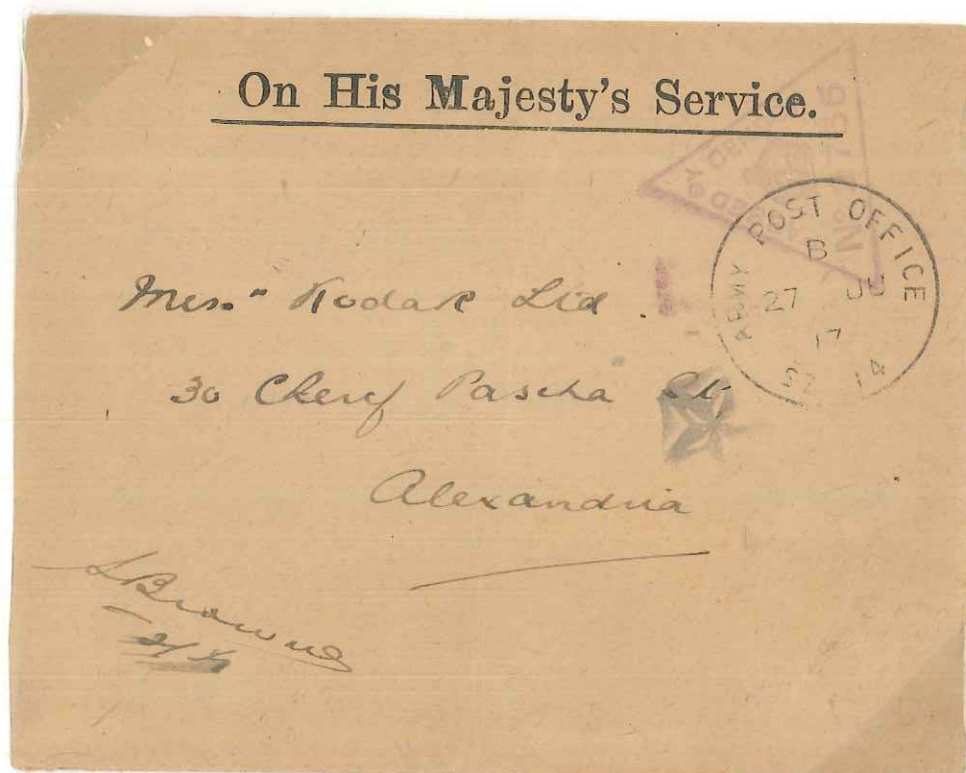 On His Majesty's Service.
BY CEN
No 4756
ARMY POST OFFICE
B
27 JU
17
SZ 14
Mess." Kodak Ltd
30 Cherif Pascha St.
Alexandria
L Browne
2/Lt